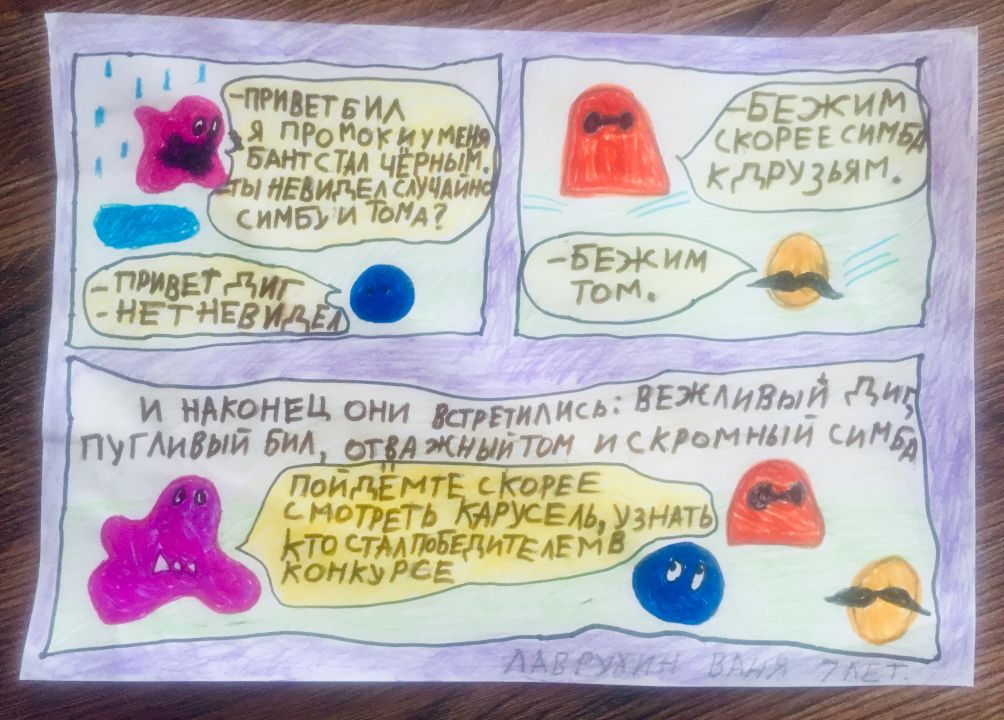 -ПРИВЕТ БИЛ
Я ПРОМОК И У МЕНЯ
БАНТ СТАЛ ЧЁРНЫМ.
-ТЫ НЕВИДЕЛ СЛУЧАЙНО
СИМБУ И ТОМА?
-ПРИВЕТ ДИГ
-НЕТ НЕВИДЕЛ
-БЕЖИМ
СКОРЕЕ СИМБА
К ДРУЗЬЯМ.
-БЕЖИМ
ТОМ.
И НАКОНЕЦ ОНИ ВСТРЕТИЛИСЬ: ВЕЖЛИВЫЙ ДИГ,
ПУГЛИВЫЙ БИЛ, ОТВАЖНЫЙ ТОМ И СКРОМНЫЙ СИМБА
ПОЙДЁМТЕ СКОРЕЕ
СМОТРЕТЬ КАРУСЕЛЬ, УЗНАТЬ
КТО СТАЛ ПОБЕДИТЕЛЕМ В
КОНКУРСЕ
ЛАВРУХИН ВАНЯ 7 ЛЕТ.